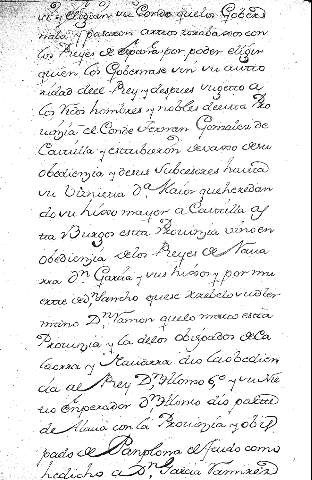 elegian un Conde que los Gober
nase y pasaron
los Reyes de españa por poder eligir
quien los Gobernase sin su auto
ridad del Rey y despues sugetto a
los Ricos hombres y nobles de esta Pro
uinzia el Conde Fernan Gonzalez de
Castilla y estubieron devaxo de su
obedienzia y de sus Subcesores hasta
su Visnieta D.ª Maior que heredan
do su hixo mayor a Castilla as
ta Burgos esta Prouinzia vino en
obedienzia de los Reyes de Naua
rra D.n Garzia y sus hixos y por mu
erte de D.n Sancho que se
mano D.n Ramon que lo mato esta
Prouinzia y la de los obispados de Ca
laorra y Nauarra dio la obedien
zia al Rey D.n Alonso 6º y su Nie
to enperador D.n Alonso dio parte
de Alaua con la Prouinzia y obis
pado de Panplona el feudo como
he dicho a D.n Garzia Ramirez